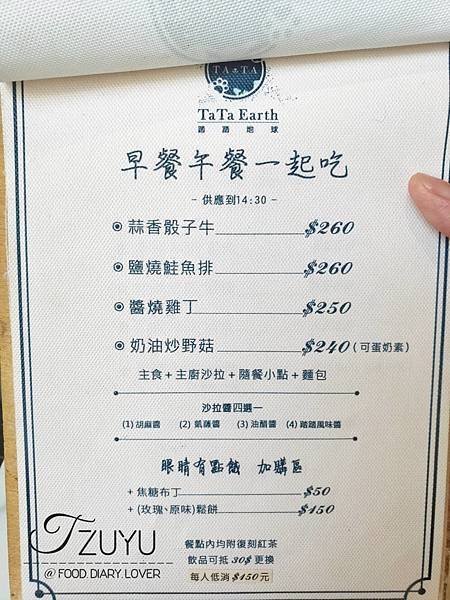 TATA
TaTa Earth
踏踏地球
早餐午餐一起吃
- 供應到14:30 -
蒜香骰子牛 $260
鹽燒鮭魚排 $260
醬燒雞丁 $250
奶油炒野菇 $240 (可蛋奶素)
主食+主廚沙拉+隨餐小點+麵包
沙拉醬四選一
(1) 胡麻醬 (2) 凱薩醬 (3) 油醋醬 (4) 踏踏風味醬
眼睛有點餓 加購區
+ 焦糖布丁 $50
+ (玫瑰、原味)鬆餅 $150
餐點內均附復刻紅茶
飲品可抵 30$ 更換
每人低消 $150元
TZUYU
@ FOOD.DIARY.LOVER